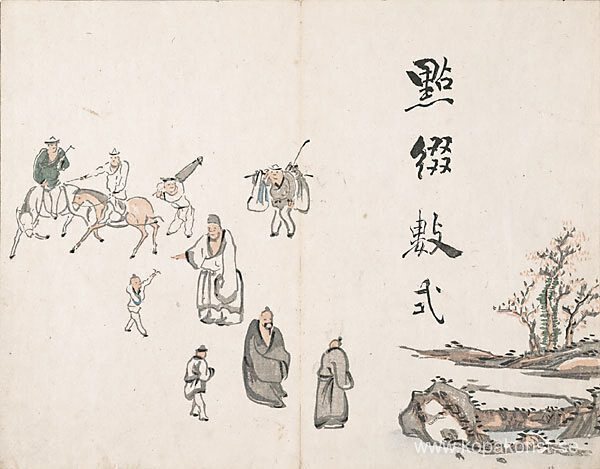 點綴數式
www.kopakonst.se